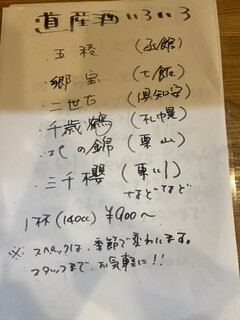 道産酒いろいろ
・五稜 (函館)
・郷宝 (七飯)
・二世古 (倶知安)
・千歳鶴 (札幌)
・北の錦 (栗山)
・三千櫻 (東川)
などなど
1杯(140cc) ¥900～
※ スペックは、季節で変わります。
スタッフまで、お気軽に!!